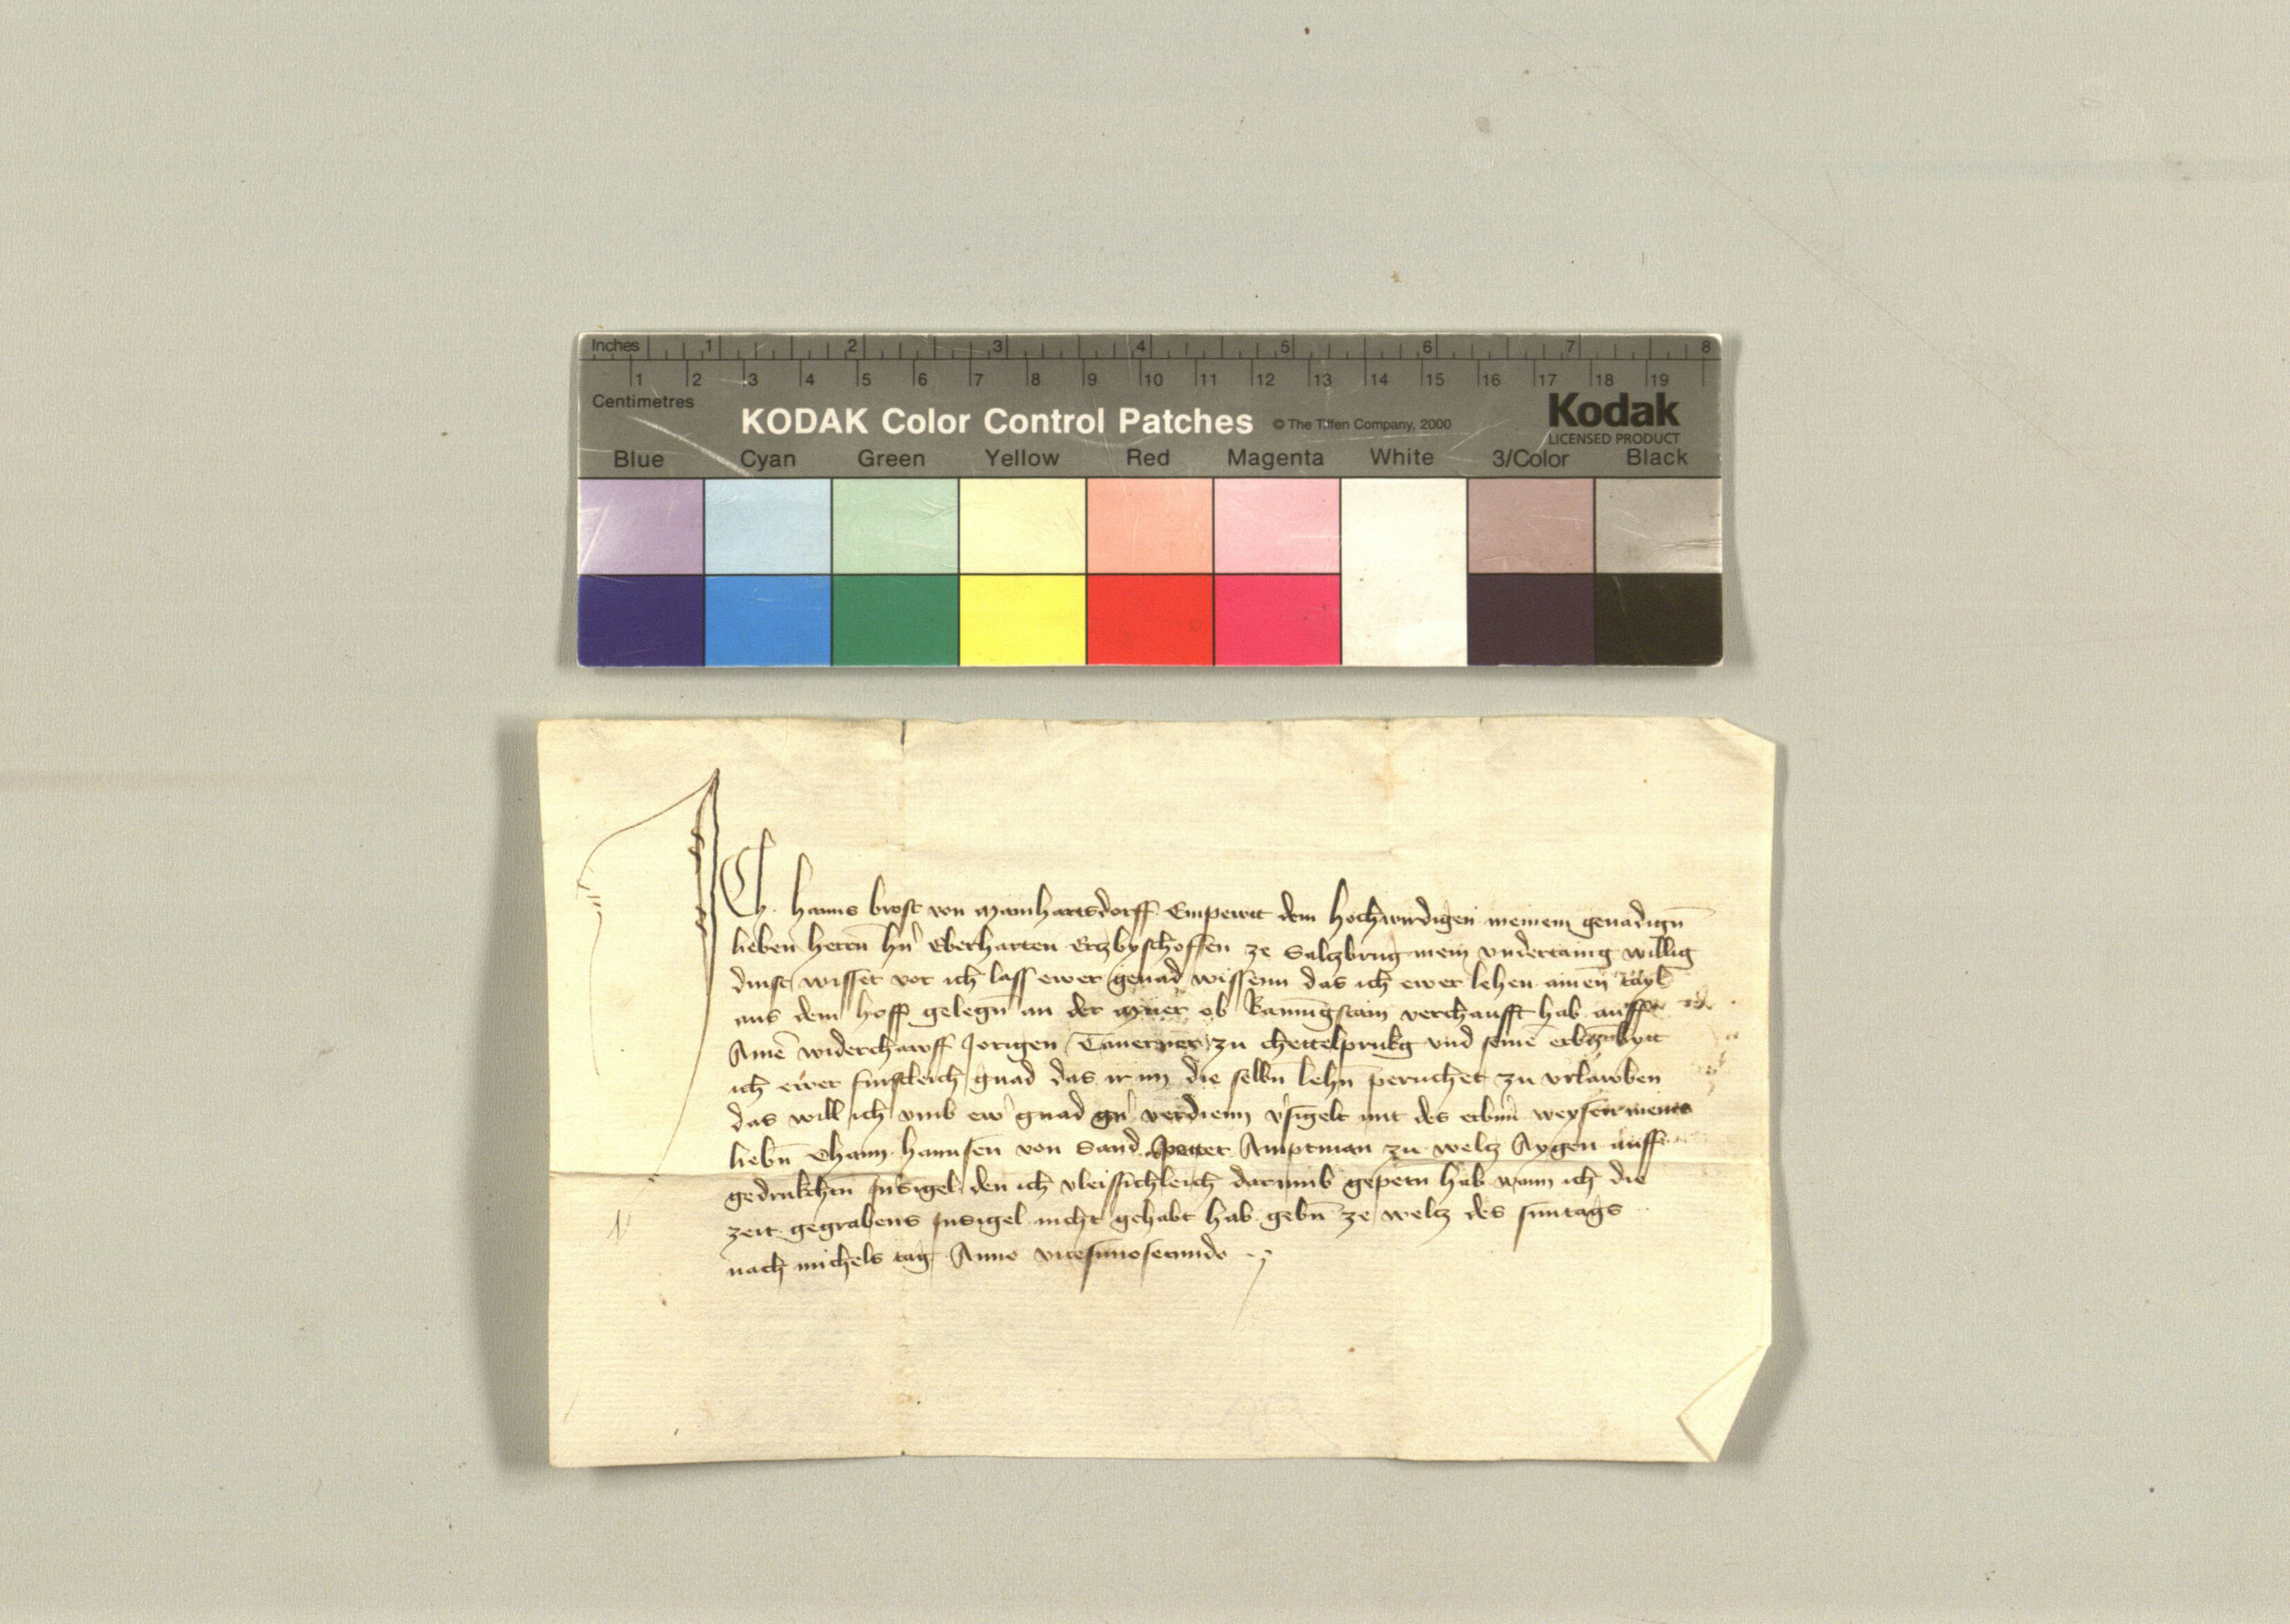 Inches 1 2 3 4 5 6 7 8
1 2 3 4 5 6 7 8 9 10 11 12 13 14 15 16 17 18 19
Centimetres
KODAK Color Control Patches © The Tiffen Company, 2000 Kodak
LICENSED PRODUCT
Blue Cyan Green Yellow Red Magenta White 3/Color Black
Ich hanns prost von mainhartsdorff Empewt dem hochwirdigen meinem genadign̄
lieben herrn̄ hn̄ Eberharten Erczbyschoffen ze Salczburg mein vndertanig willig
dinst wisset vor ich lass ewer genad wissenn das ich ewer lehen ainen tayl
aus dem hoff gelegn̄ an der muer ob Ramingstain verchaufft hab auff
Ainē widerchawff Jorigen Tauerner zu chettelprukg vnd seinē erbn̄ bytt
ich ewer furstleich gnad das ir im die selbn̄ lehn̄ peruchet zu vrlawben
das will ich vmb ew gnad gn̄ verdienn v'sigelt mit des erbn̄ weysen meins
liebn̄ Oham hannsen von Sand Peter Amptman zu welcz Aygen auff
gedrukchtn̄ Insigel den ich vleissichleich darumb gepetn̄ hab wann ich die
zeit gegrabens Insigel nicht gehabt hab gebn̄ ze welcz des suntags
nach michels tag Anno vicesimosecundo